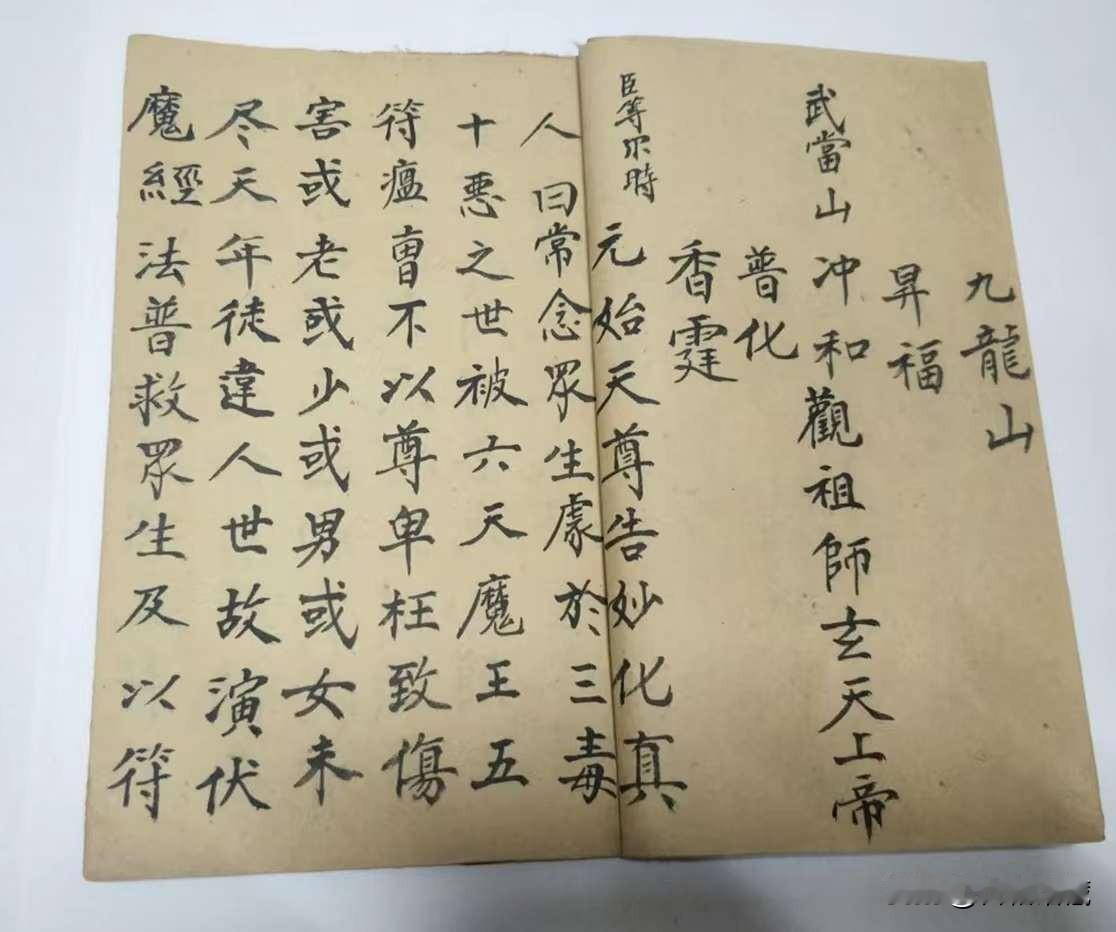 九龍山
昇福
武當山冲和觀祖師玄天上帝
普化
香霆
臣等尔時
元始天尊告妙化真
人曰常念眾生處於三毒
十惡之世被六天魔王五
符瘟曺不以尊卑枉致傷
害或老或少或男或女未
尽天年徒違人世故演伏
魔經法普救眾生及以符